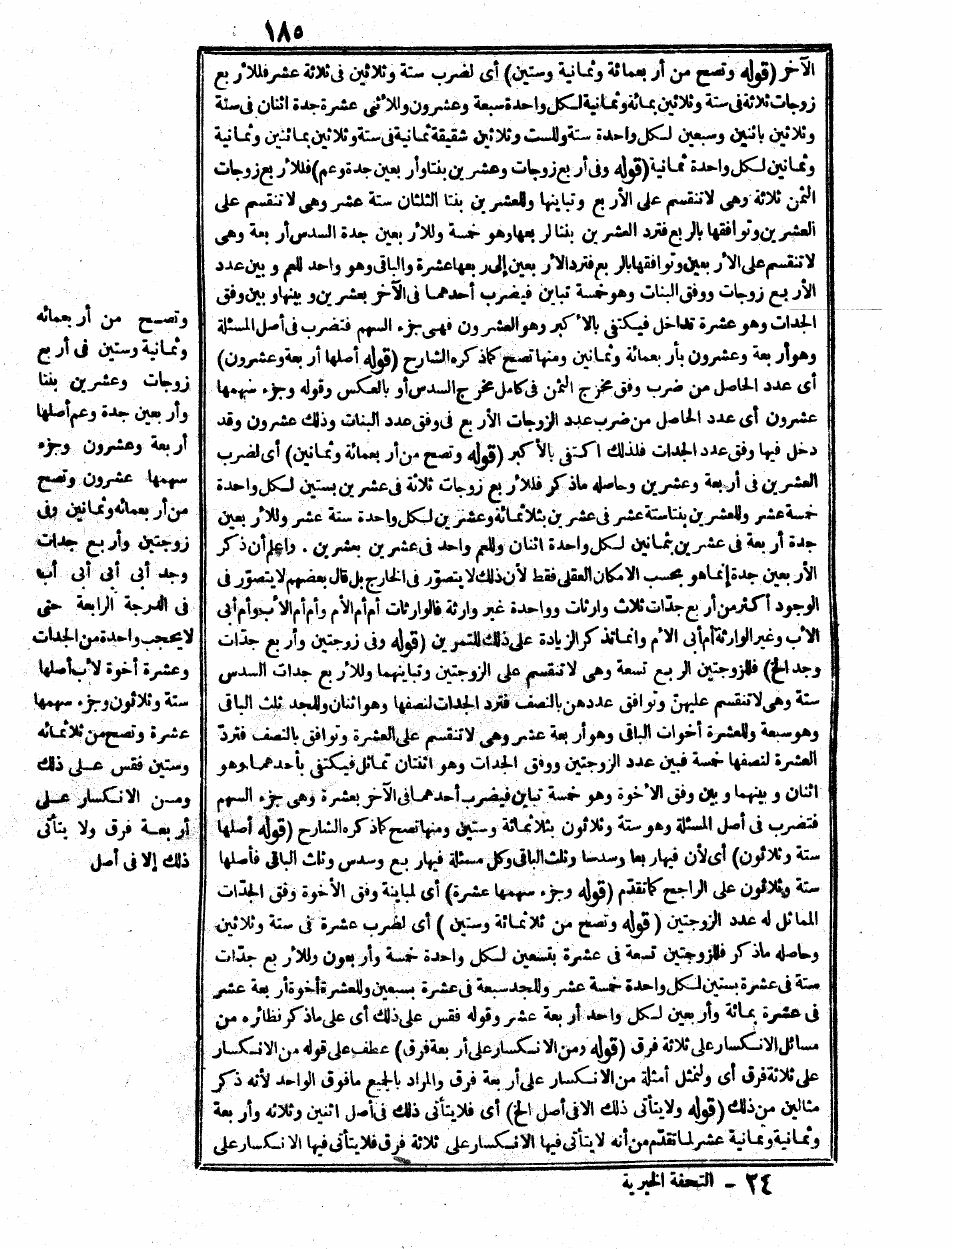 ١٨٥
الآخر (قوله وتصح من أربعمائة وثمانية وستين) أى لضرب ستة وثلاثين فى ثلاثة عشر فللأربع
زوجات ثلاثة فى ستة وثلاثين بمائة وثمانية لكل واحدة سبعة وعشرون وللاثنى عشرة جدة اثنان فى ستة
وثلاثين باثنين وسبعين لكل واحدة ستة وللست وثلاثين شقيقة ثمانية فى ستة وثلاثين بمائتين وثمانية
وثمانين لكل واحدة ثمانية (قوله وفى أربع زوجات وعشرين بنتا وأربعين جدة وعم) فللأربع زوجات
الثمن ثلاثة وهى لا تنقسم على الأربع وتباينها وللعشرين بنتا الثلثان ستة عشر وهى لا تنقسم على
العشرين وتوافقها بالربع فترد العشرين بنتا لربعها وهو خمسة وللأربعين جدة السدس أربعة وهى
لا تنقسم على الأربعين وتوافقها بالربع فترد الأربعين إلى ربعها عشرة والباقى وهو واحد للعم وبين عدد
الأربع زوجات ووفق البنات وهو خمسة تباين فيضرب أحدهما فى الآخر بعشرين وبينها وبين وفق
الجدات وهو عشرة تداخل فيكتفى بالأكبر وهو العشرون فهى جزء السهم فتضرب فى أصل المسئلة
وهو أربعة وعشرون بأربعمائة وثمانين ومنها تصح كما ذكره الشارح (قوله أصلها أربعة وعشرون)
أى عدد الحاصل من ضرب وفق مخرج الثمن فى كامل مخرج السدس أو بالعكس وقوله وجزء سهمها
عشرون أى عدد الحاصل من ضرب عدد الزوجات الأربع فى وفق عدد البنات وذلك عشرون وقد
دخل فيها وفق عدد الجدات فلذلك اكتفى بالأكبر (قوله وتصح من أربعمائة وثمانين) أى لضرب
العشرين فى أربعة وعشرين وحاصله ماذكر فللأربع زوجات ثلاثة فى عشرين بستين لكل واحدة
خمسة عشر وللعشرين بنتا ستة عشر فى عشرين بثلاثمائة وعشرين لكل واحدة ستة عشر وللأربعين
جدة أربعة فى عشرين بثمانين لكل واحدة اثنان وللعم واحد فى عشرين بعشرين . واعلم أن ذكر
الأربعين جدة إنما هو بحسب الامكان العقلى فقط لأن ذلك لا يتصوّر فى الخارج بل قال بعضهم لا يتصوّر فى
الوجود أكثر من أربع جدّات ثلاث وارثات وواحدة غير وارثة فالوارثات أم أم الأم وأم أم الأب وأم أبى
الأب وغير الوارثة أم أبى الأم وانما تذكر الزيادة على ذلك للتمرين (قوله وفى زوجتين وأربع جدّات
وجد الخ) فللزوجتين الربع تسعة وهى لا تنقسم على الزوجتين وتباينهما وللأربع جدات السدس
ستة وهى لا تنقسم عليهن وتوافق عددهن بالنصف فترد الجدات لنصفها وهو اثنان وللجد ثلث الباقى
وهو سبعة وللعشرة أخوات الباقى وهو أربعة عشر وهى لا تنقسم على العشرة وتوافق بالنصف فتردّ
العشرة لنصفها خمسة فبين عدد الزوجتين ووفق الجدات وهو اثنتان تماثل فيكتفى بأحدهما وهو
اثنان وبينهما وبين وفق الاخوة وهو خمسة تباين فيضرب أحدهما فى الآخر بعشرة وهى جزء السهم
فتضرب فى أصل المسئلة وهو ستة وثلاثون بثلاثمائة وستين ومنها تصح كما ذكره الشارح (قوله أصلها
ستة وثلاثون) أى لأن فيها ربعا وسدسا وثلث الباقى وكل مسئلة فيها ربع وسدس وثلث الباقى فأصلها
ستة وثلاثون على الراجح كما تقدّم (قوله وجزء سهمها عشرة) أى لمباينة وفق الأخوة وفق الجدّات
المماثل له عدد الزوجتين (قوله وتصح من ثلاثمائة وستين) أى لضرب عشرة فى ستة وثلاثين
وحاصله ماذكر فللزوجتين تسعة فى عشرة بتسعين لكل واحدة خمسة وأربعون وللأربع جدّات
ستة فى عشرة بستين لكل واحدة خمسة عشر وللجد سبعة فى عشرة بسبعين وللعشرة أخوة أربعة عشر
فى عشرة بمائة وأربعين لكل واحد أربعة عشر وقوله فقس على ذلك أى على ماذكر نظائره من
مسائل الانكسار على ثلاثة فرق (قوله ومن الانكسار على أربعة فرق) عطف على قوله من الانكسار
على ثلاثة فرق أى ولنمثل أمثلة من الانكسار على أربعة فرق والمراد بالجمع مافوق الواحد لأنه ذكر
مثالين من ذلك (قوله ولا يتأتى ذلك الا فى أصل الخ) أى فلا يتأتى ذلك فى أصل اثنين وثلاثة وأربعة
وثمانية وثمانية عشر لما تقدّم من أنه لا يتأتى فيها الانكسار على ثلاثة فرق فلا يتأتى فيها الانكسار على
وتصح من أربعمائه
وثمانية وستين فى أربع
زوجات وعشرين بنتا
وأربعين جدة وعم أصلها
أربعة وعشرون وجزء
سهمها عشرون وتصح
من أربعمائه وثمانين وفى
زوجتين وأربع جدات
وجد أبى أبى أبى أب
فى الدرجة الرابعة حتى
لا يحجب واحدة من الجدات
وعشرة أخوة لأب أصلها
ستة وثلاثون وجزء سهمها
عشرة وتصح من ثلاثمائه
وستين فقس على ذلك
ومن الانكسار على
أربعة فرق ولا يتأتى
ذلك إلا فى أصل
٢٤ - التحفة الخيرية